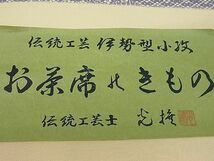 伝統工芸 伊勢型小紋
お茶席のきもの
伝統工芸士 光